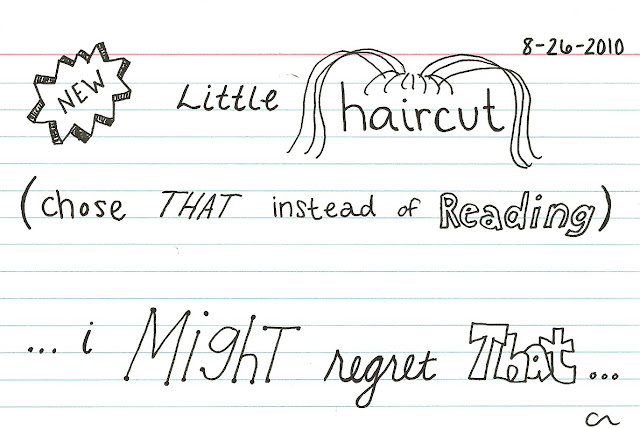 8-26-2010
NEW Little haircut
(chose THAT instead of Reading)
...i MighT regret That...